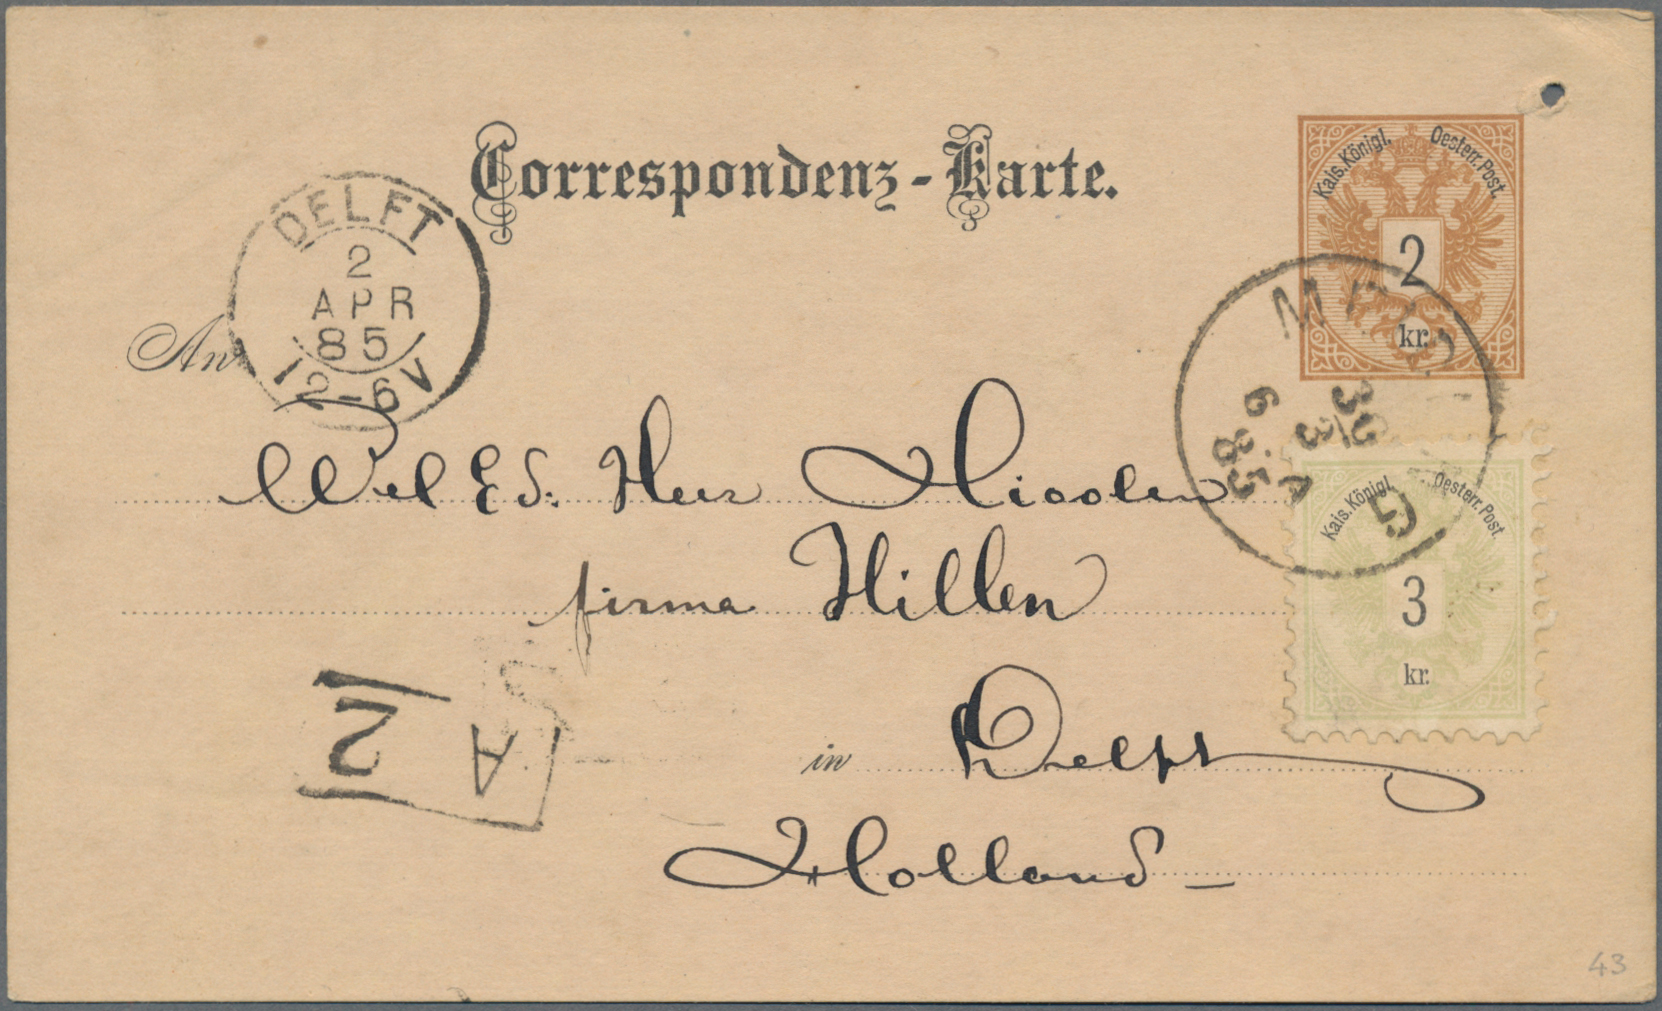 Correspondenz-Karte.
Kais. Königl. Oesterr. Post.
2
kr.
DELFT
2
APR
85
12-6V
30
3
6 A
85
An
Wel Ed: Heer
firma Hillen
Kais. Königl. Oesterr. Post.
3
kr.
A
2
in Delft
Holland
43